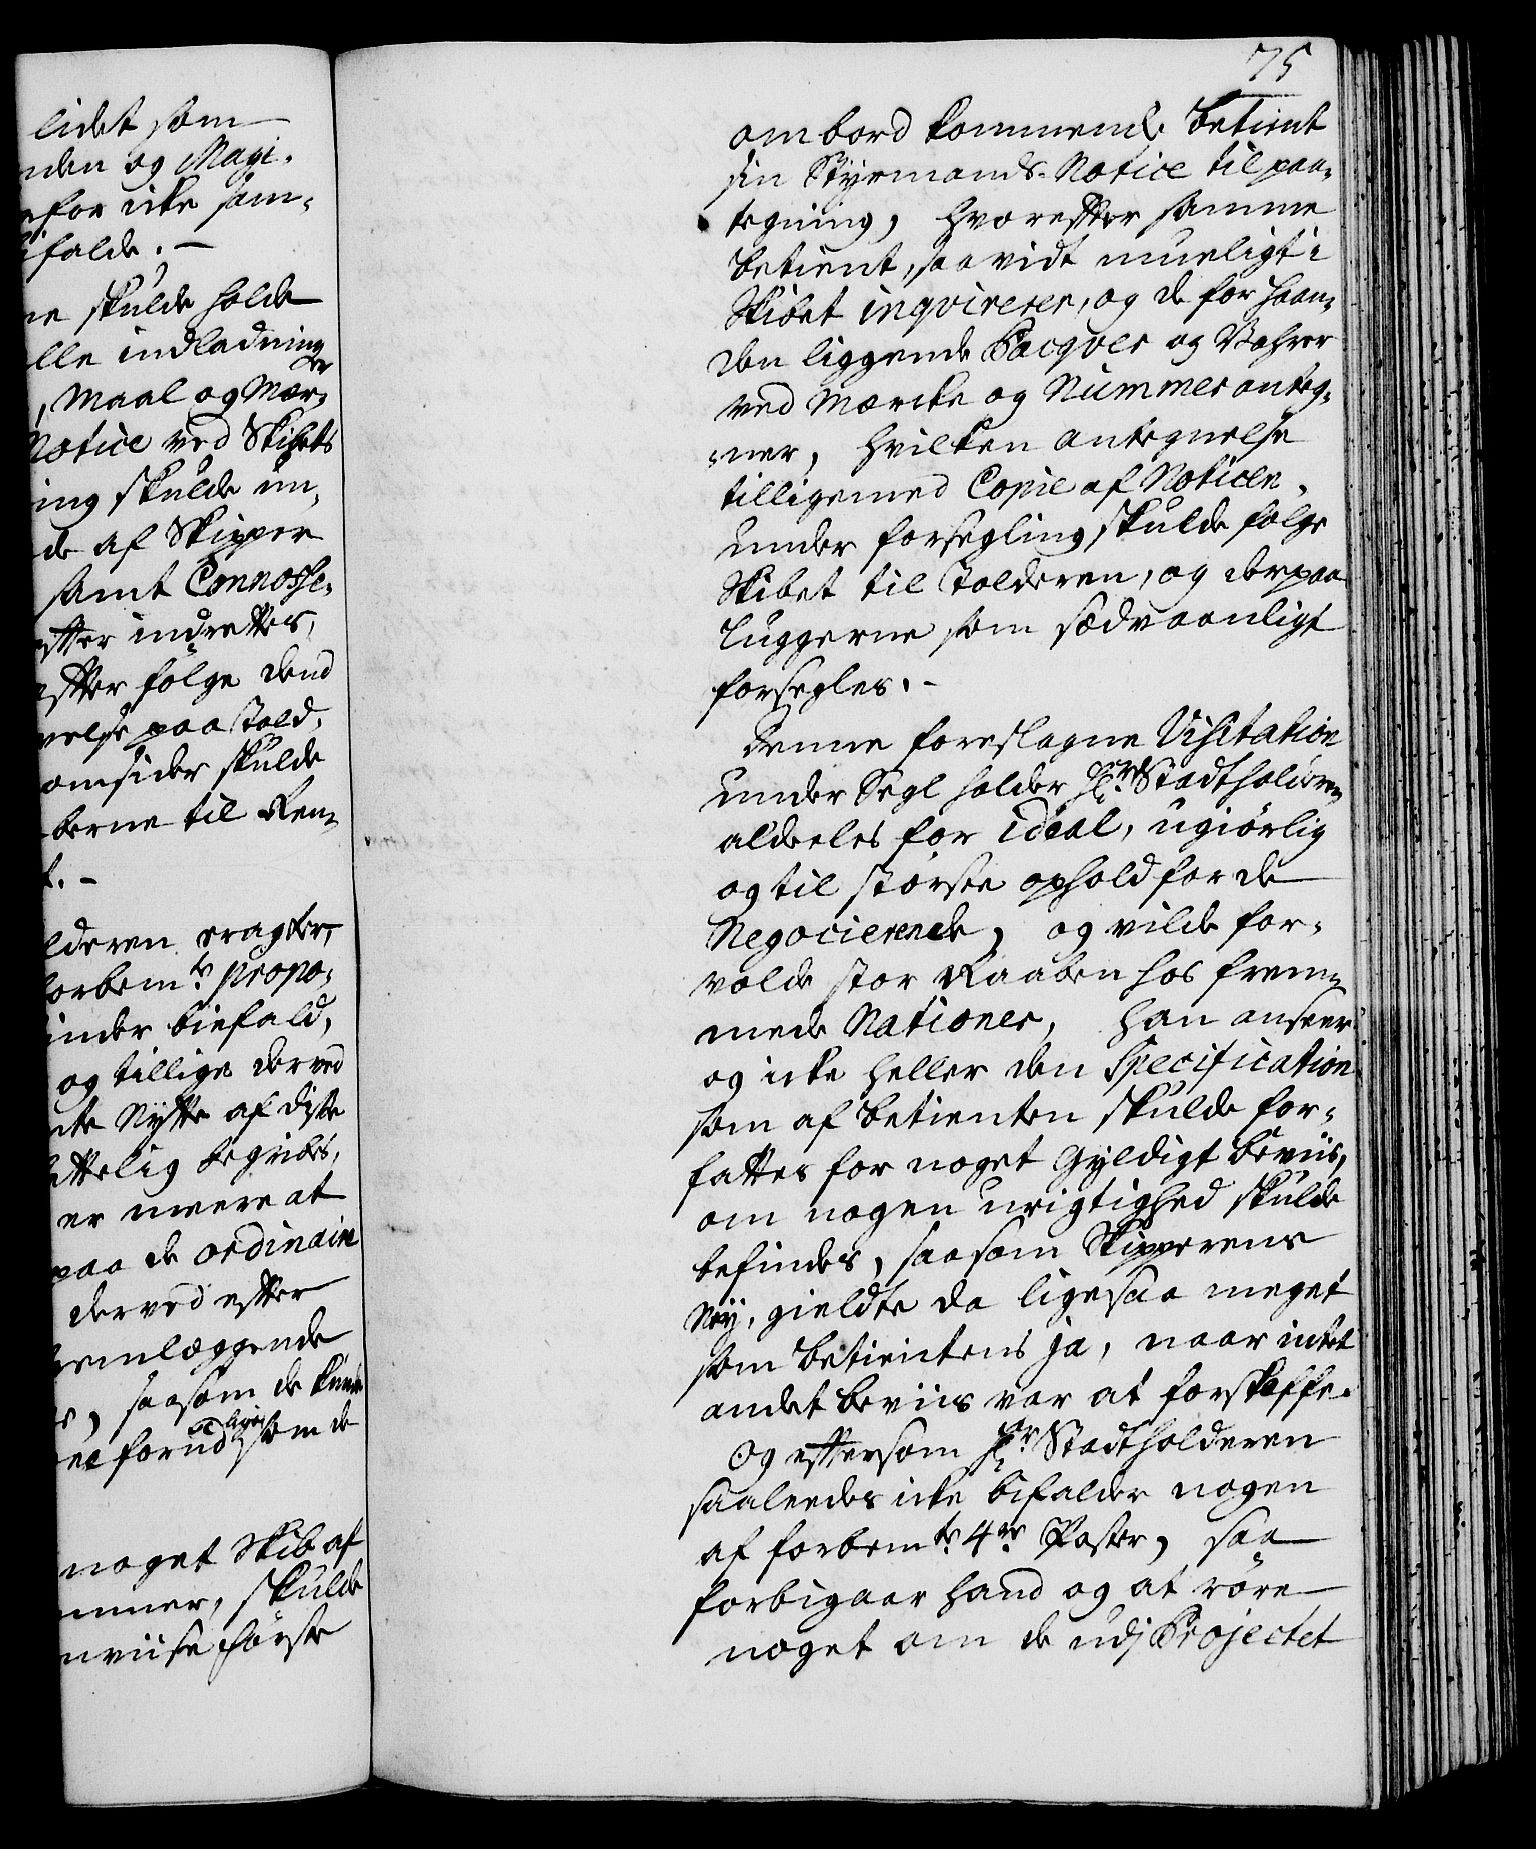 lidet som
nden og Magi-
efor icke sam-
ifalde. -
ne skulde holde
lle indladninger
, Maal og Mær-
Notice ved Skibets
ing skulde un-
de af Skipper
samt Connosse-
efter indrettes,
efter følge dend
velse paa Told-
omsider skulde
berne til Ren-
t. -
lderen eragter,
forbem.te propo-
inder biefald,
og tillige derved
te Nytte af diste
ttelig begribes,
er meere at
paa de ordinaire
derved efter
emlæggende
, saasom de kunde
forud som de
noget Skib af
mmer, skulde
nviise første
75
ombord kommende betient
sin Styrmands-Notice til paa-
tegning, hvorefter samme
betient, saavidt mueligt i
Skibet inqvirerer, og de for haan-
den liggende Pacqver og Vahrer
ved Mærcke og Nummer anteg-
ner, hvilken antegnelse
tilligemed Copie af Noticen
under forsegling skulde følge
Skibet til Tolderen, og derpaa
Luggerne som sædvaanligt
forsegles. -
Denne foreslagne Visitation
under Segl holder Hr. Stadtholderen
aldeeles for ideal, ugiørlig
og til største ophold for de
Negocierende, og vilde for-
volde stor Raaben hos frem-
mede Nationer, han anseer
og icke heller den Specification
som af betienten skulde for-
fattes for noget Gyldigt beviis,
om nogen urigtighed skulde
befindes, saasom Skipperens
Ney, gieldte da ligesaa meget
som betientens ja, naar intet
andet beviis var at forskaffe.
Og eftersom Hr. Stadtholderen
saaleedes icke bifalder nogen
af forbem.te 4re Poster, saa
forbigaar hand og at røre
noget om de udj Projectet